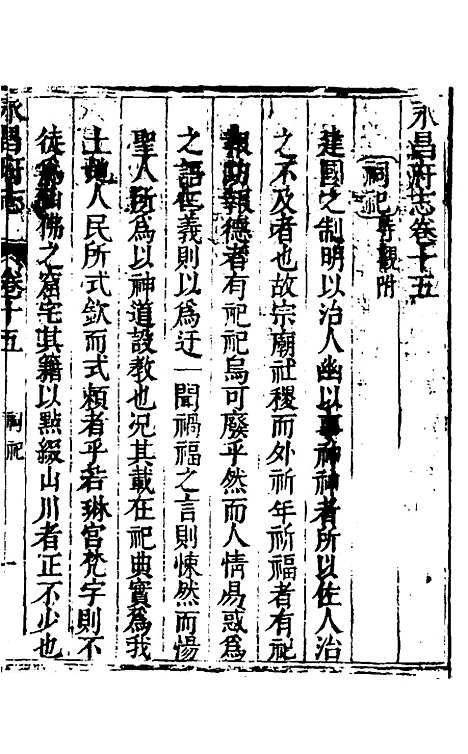 永昌府志卷十五
祠祀寺觀附
建國之制明以治人幽以事神神者所以佐人治
之不及者也故宗廟社稷而外祈年祈福者有祀
報功報德者有祀祀烏可廢乎然而人情易惑爲
之語仁義則以爲迂一聞禍福之言則悚然而惕
聖人所爲以神道設敎也况其載在祀典實爲我
土地人民所式欽而式頼者乎若琳宫梵宇則不
徒爲仙佛之窟宅其籍以點綴山川者正不少也
永昌府志 卷十五 祠祀 一